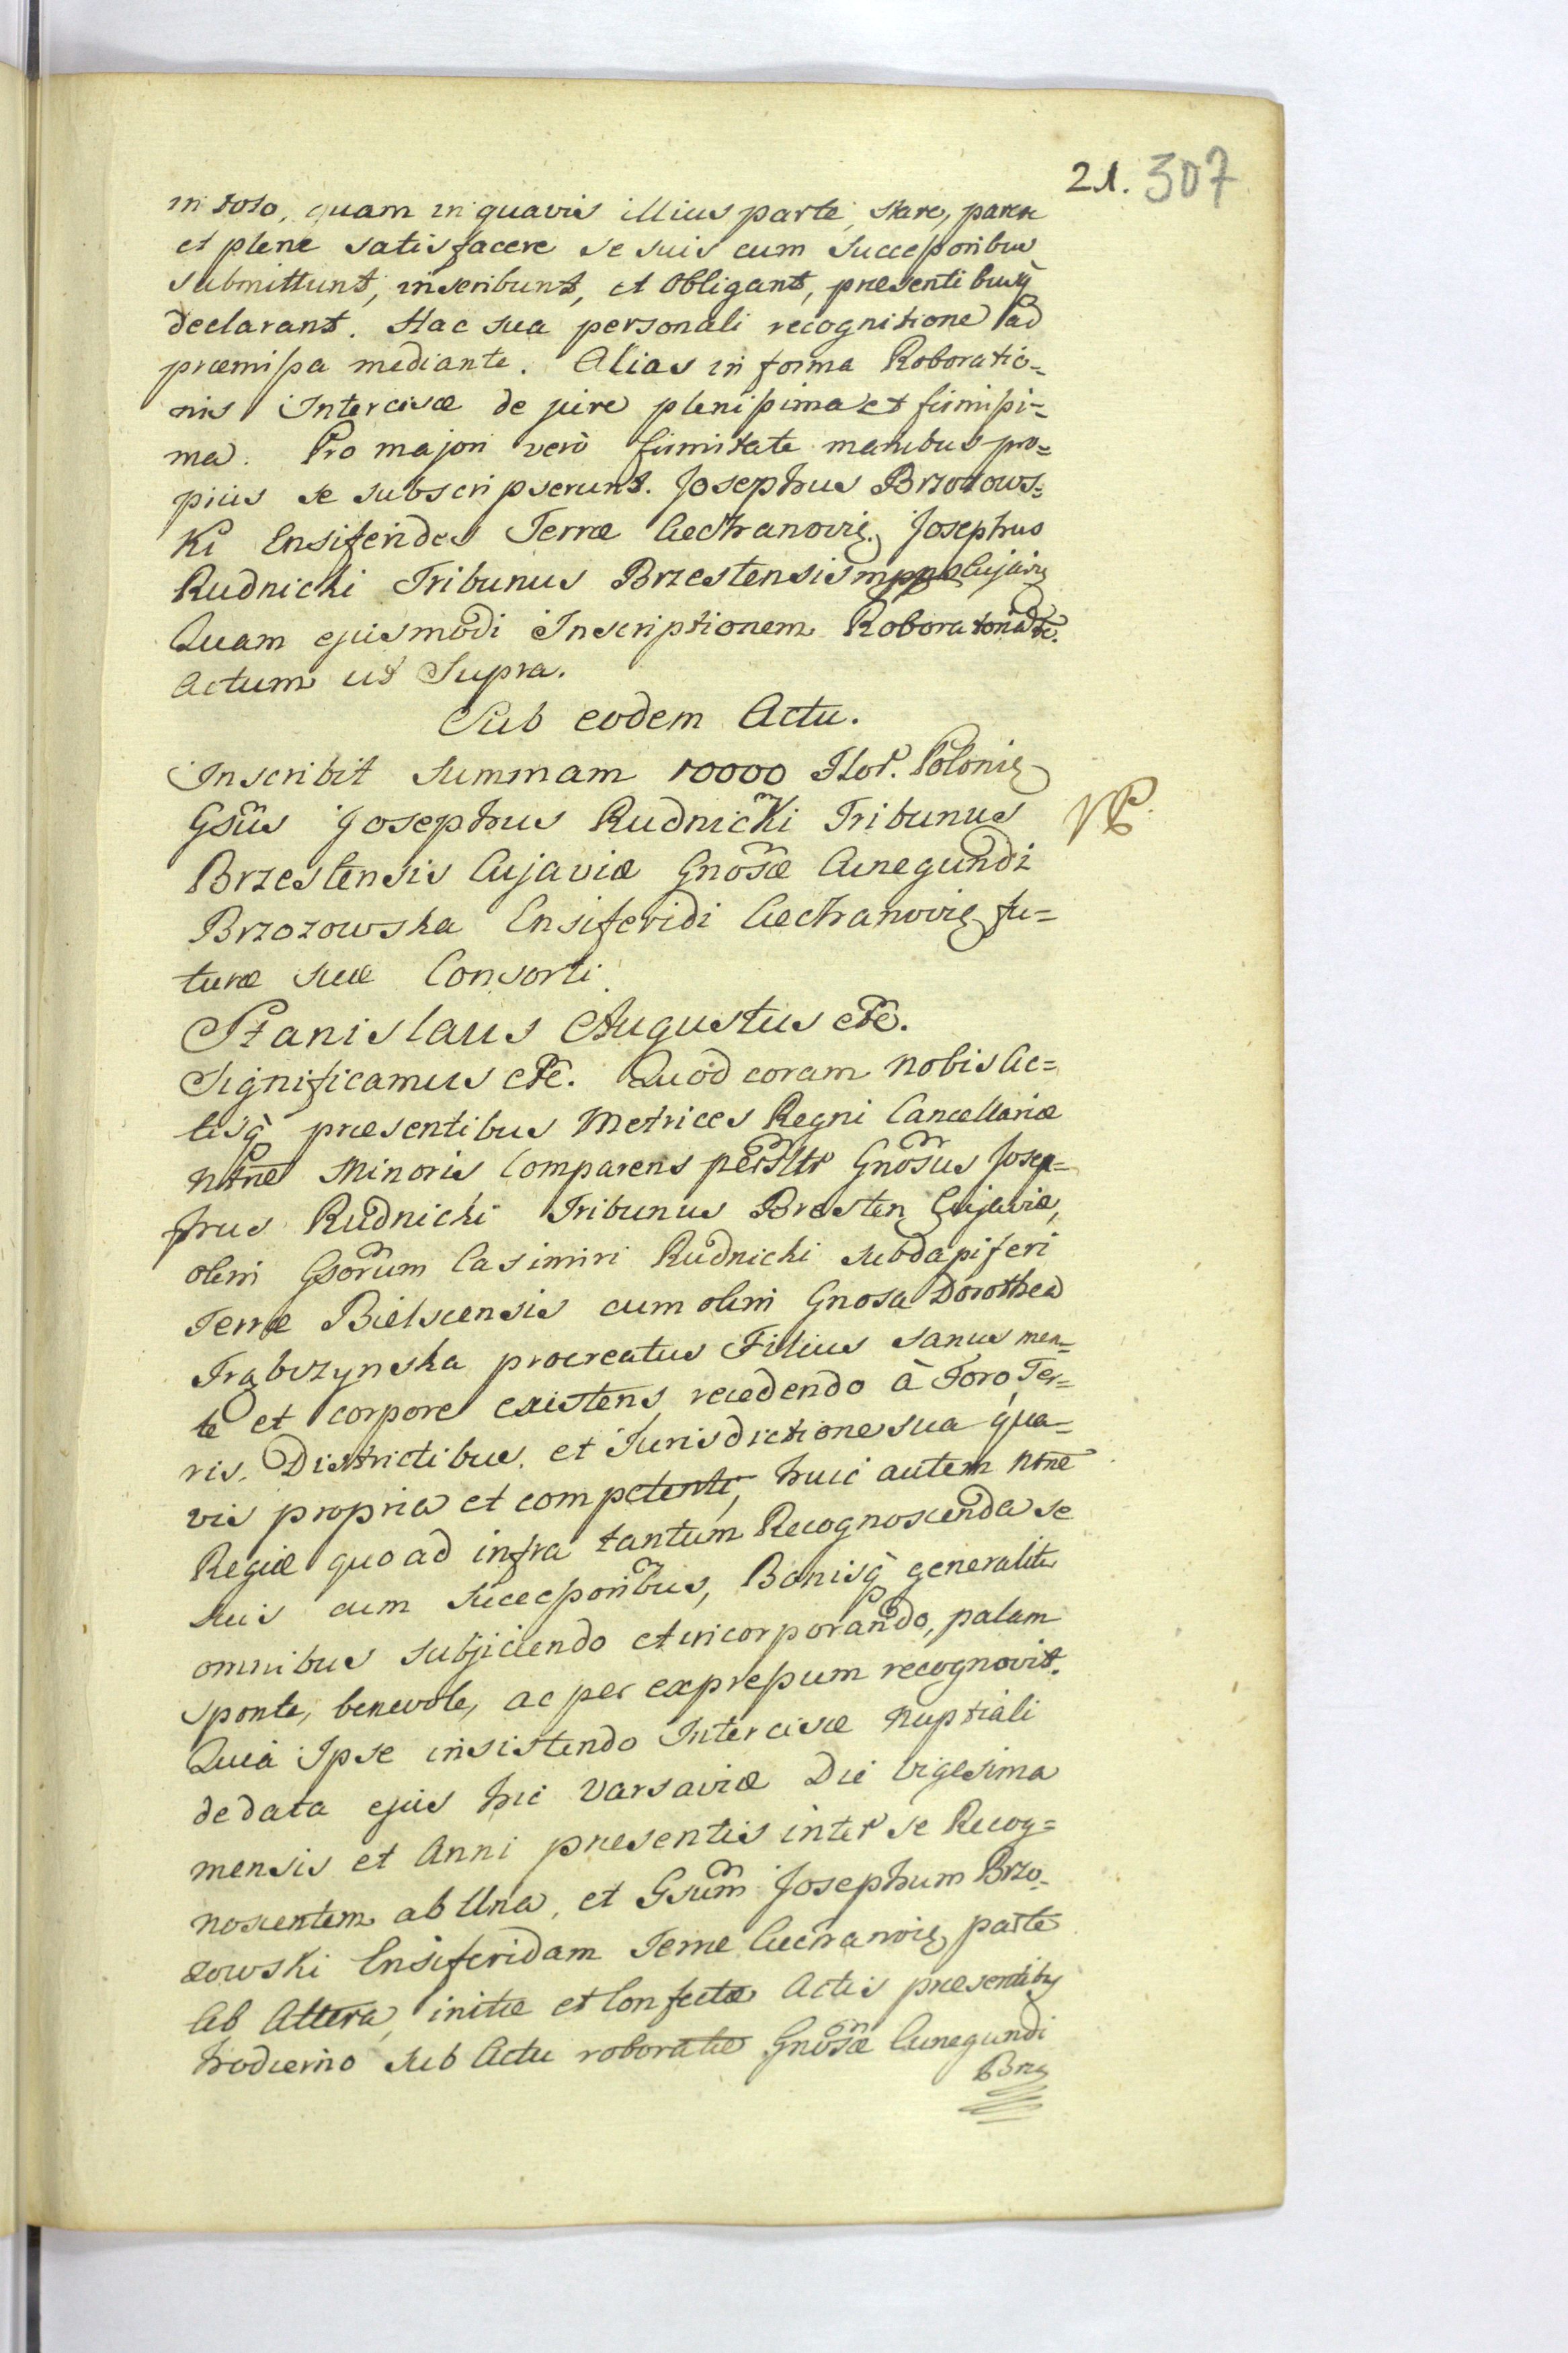 21. 307
in toto, quam in quavis illius parte, stare, parere
et plene satisfacere se suis cum Successoribus
submittunt, inscribunt, et Obligant, præsentibusq̀
declarant. Hac sua personali recognitione ad
præmissa mediante. Alias in forma Roboratio=
nis Intercisæ de jure plenissima et firmissi=
ma. Pro majori verò firmitate manibus pro=
priis se subscripserunt. Josephus Brzozows=
Ki Ensiferides Terræ Ciechanovię. Josephus
Rudnicki Tribunus Brzestensis mppa Cujavię
Quam ejusmodi Inscriptionem Roboratoria etc.
Actum ut Supra.
Sub eodem Actu.
Inscribit summam 10000 Flor. Polonię
Gsūs Josephus Rudnicki Tribunus
Brzestensis Cujaviæ Gnosæ Cunegundi
Brzozowska Ensiferidi Ciechanovię fu=
turæ suæ Consorti.
Stanislaus Augustus etc.
Significamus etc. Quod coram nobis Ac=
tisq̀ præsentibus Metrices Regni Cancellariæ
nræ Minoris Comparens persltr Gnosus Josep=
hus Rudnicki Tribunus Bresten Cujaviæ,
olim Gsorum Casimiri Rudnicki subdapiferi
Terræ Bielscensis cum olim Gnosa Dorothea
Trąbczynska procreatus Filius sanus men=
te et corpore existens, recedendo à Foro Ter=
ris, Districtibus. et Jurisdictione sua qua=
vis propria et competenti, huic autem nræ
Regiæ quo ad infra tantum Recognoscenda se
suis cum Successoribus, Bonisq̀ generaliter
omnibus subjiciendo et incorporando, palam
sponte, benevole, ac per expressum recognovit.
Quia Ipse insistendo Intercisæ nuptiali
de data ejus hic Varsaviæ Die vigesima
mensis et Anni præsentis inter se Recog=
noscentem ab Una, et Gsum Josephum Brzo=
zowski Ensiferidam Terræ Ciechanovię parte
ab Altera, initæ et Confectæ Actis præsentibus
hodierno sub Actu roboratæ Gnosæ Cunegundi
Brzo